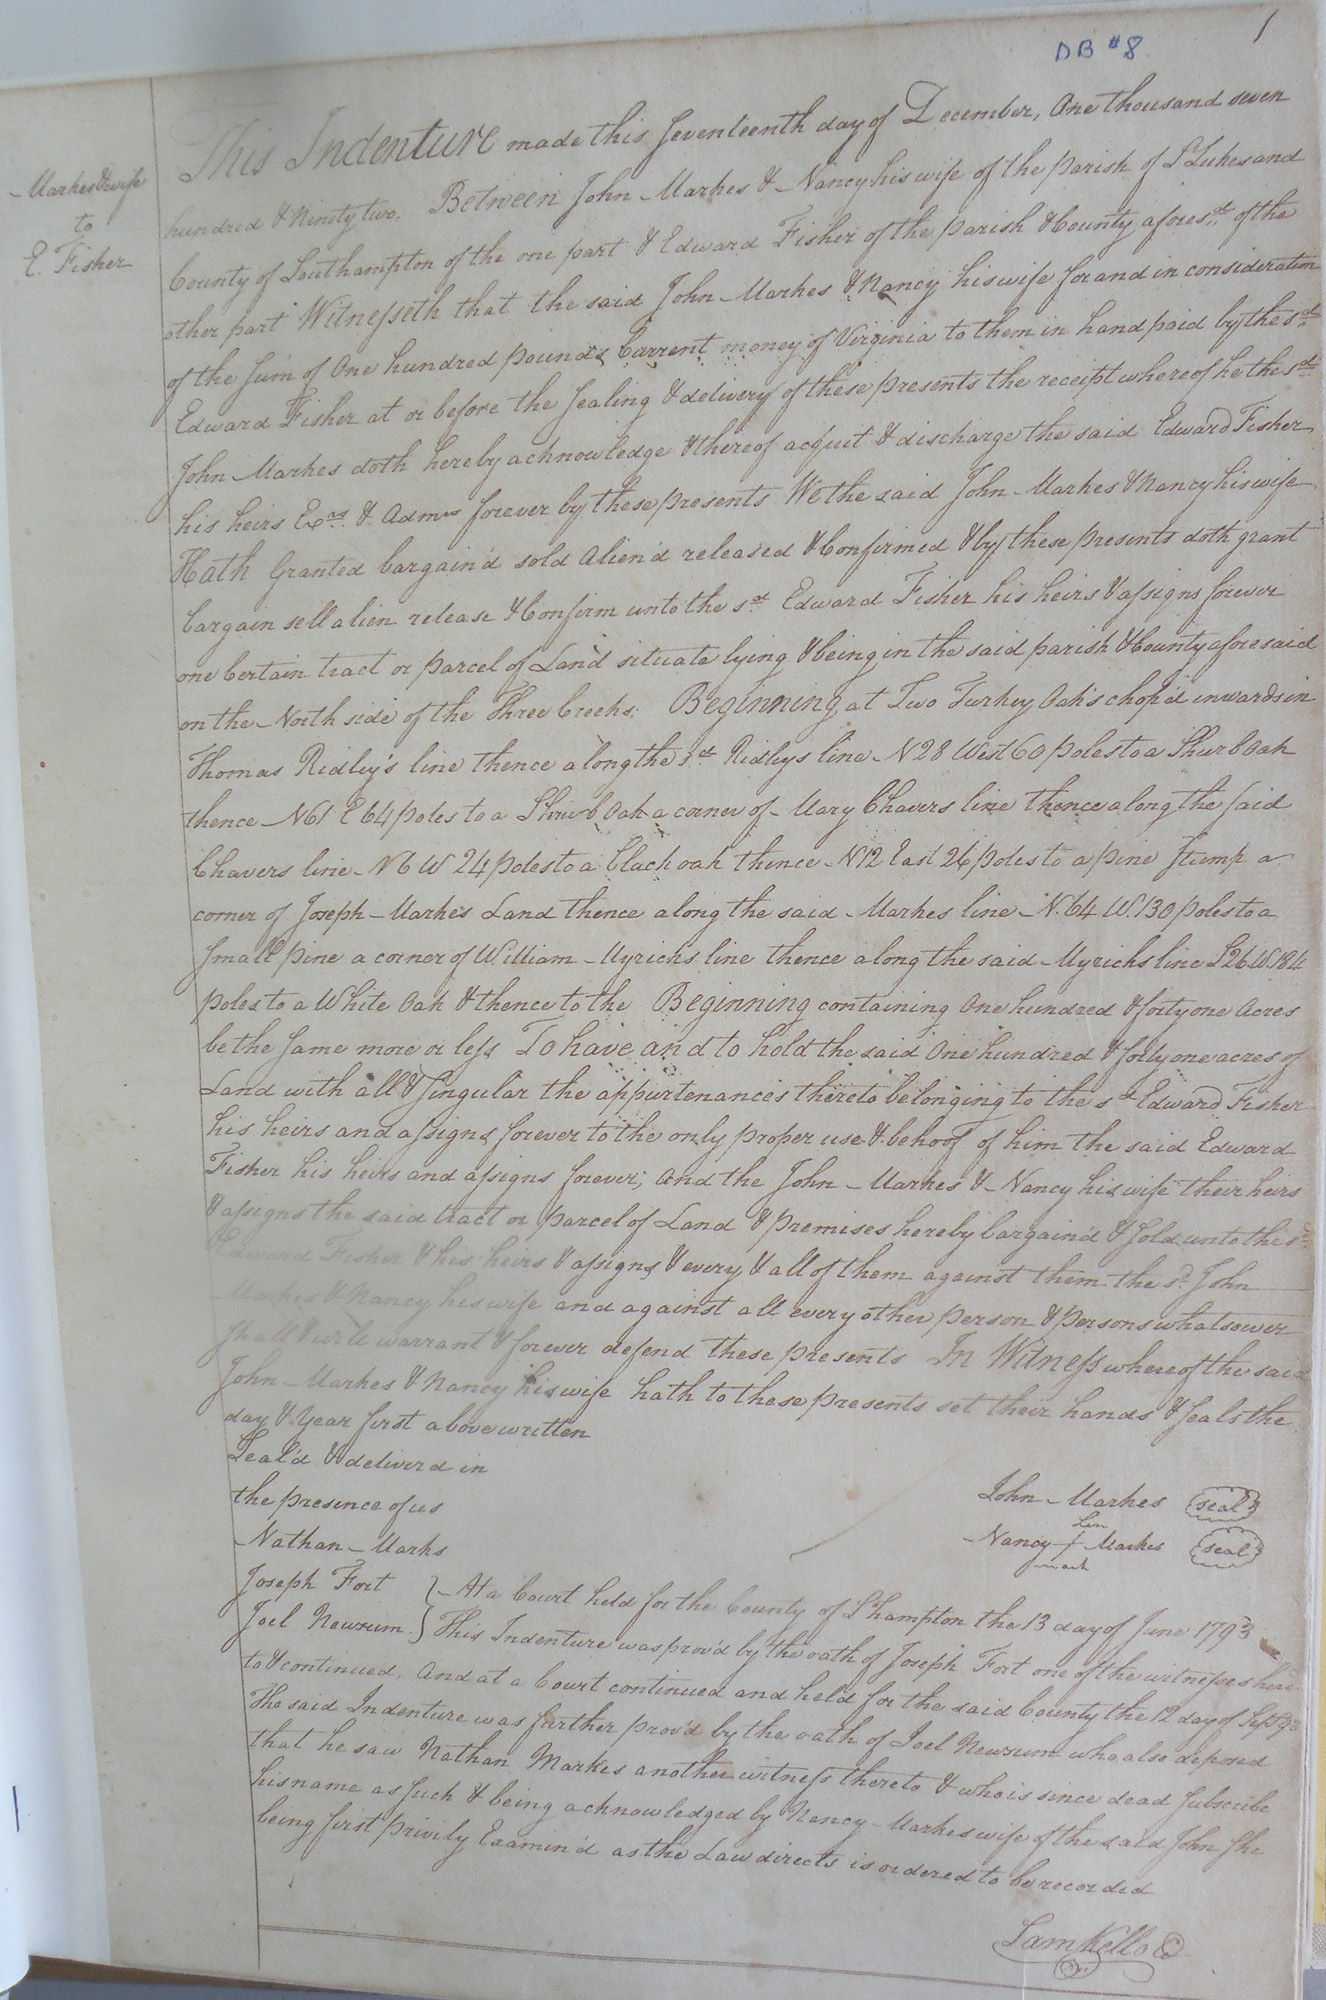 DB #8
1
Markes & wife
to
E. Fisher
This Indenture made this Seventeenth day of December, One thousand seven
hundred & Ninety two. Between John Markes & Nancy his wife of the Parish of St Lukes and
County of Southampton of the one part & Edward Fisher of the parish & County aforesd. of the
other part Witnesseth that the said John Markes & Nancy his wife for and in consideration
of the Sum of One hundred pounds Current money of Virginia to them in hand paid by the sd.
Edward Fisher at or before the Sealing & delivery of these presents the receipt whereof he the sd.
John Markes doth hereby acknowledge & thereof acquit & discharge the said Edward Fisher
his heirs Exrs. & Admrs forever by these presents We the said John Markes & Nancy his wife
Hath Granted bargain'd sold Alien'd released & Confirmed & by these presents doth grant
bargain sell alien release & Confirm unto the sd. Edward Fisher his heirs & assigns forever
one Certain tract or parcel of Land situate lying & being in the said parish & County aforesaid
on the North side of the Three Creeks. Beginning at Two Turkey Oak's chop'd inwards in
Thomas Ridley's line thence along the sd Ridleys line N 28 West 60 poles to a Shurb Oak
thence N61 E 64 poles to a Shrub Oak a corner of Mary Chavers line thence along the said
Chavers line N 6 W 24 poles to a black oak thence N12 East 26 poles to a pine stump a
corner of Joseph Markes Land thence along the said Markes line N.64 W.130 poles to a
small pine a corner of William Myricks line thence along the said Myricks line S26W.184
poles to a White Oak & thence to the Beginning containing One hundred & forty one Acres
be the same more or less To have and to hold the said One hundred & forty one acres of
Land with all & singular the appurtenances thereto belonging to the sd Edward Fisher
his heirs and assigns forever to the only proper use & behoof of him the said Edward
Fisher his heirs and assigns forever; and the John Markes & Nancy his wife their heirs
& assigns the said tract or parcel of Land & premises hereby bargain'd & sold unto the sd.
Edward Fisher & his heirs & assigns & every & all of them against them the sd. John
Markes & Nancy his wife and against all every other person & persons whatsoever
shall & will warrant & forever defend these presents In Witness whereof the said
John Markes & Nancy his wife hath to these presents set their hands & seals the
day & Year first above written
Seal'd & deliverd in
the presence of us
Nathan Marks
Joseph Fort
Joel Newsum
John Markes (seal)
her
Nancy + Markes (seal)
mark
At a Court held for the County of S'hampton the 13 day of June 1793
This Indenture was prov'd by the oath of Joseph Fort one of the witnesses here
to & continued. And at a Court continued and held for the said County the 12 day of Sept 93
The said Indenture was further prov'd by the oath of Joel Newsum who also deposed
that he saw Nathan Markes another witness thereto & who is since dead subscribe
his name as such & being acknowledged by Nancy Markes wife of the said John she
being first privily Examin'd as the Law directs is ordered to be recorded
Sam Kello C